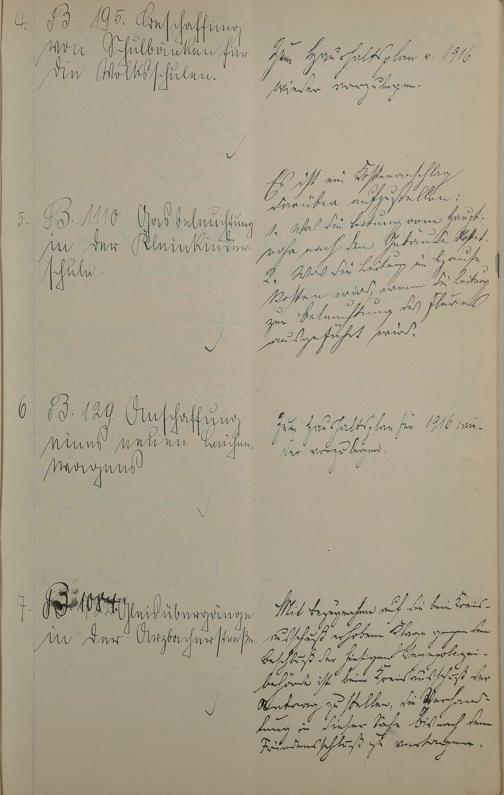 4. B. 195. Anschaffung
von Schulbänken für
die Volksschulen.
Zum Haushaltsplan v. 1916
wieder vorzulegen.
5. B. 1110 Gasbeleuchtung
in der Kleinkinder-
schule.
Es ist ein Kostenanschlag
darüber aufzustellen:
1. Was die Leitung vom Haupt-
rohr nach dem Gebäude kostet.
2. Was die Leitung im Hause
kosten wird, wenn die Leitung
zur Beleuchtung des Flures
ausgeführt wird.
6. B. 129 Anschaffung
eines neuen Leichen-
wagens
Zum Haushaltsplan für 1916 wie-
der vorzulegen.
7. B. 1084. Gleisübergänge
in der Arzbacherstraße
Mit bezugnahme auf die beim Kreis-
ausschuß erhobene Klage gegen den
Beschluß der hiesigen Wegepolizei-
behörde ist beim Kreisausschuß der
Antrag zu stellen, die Verhand-
lung in dieser Sache bis nach dem
Friedensschluß zu vertagen.